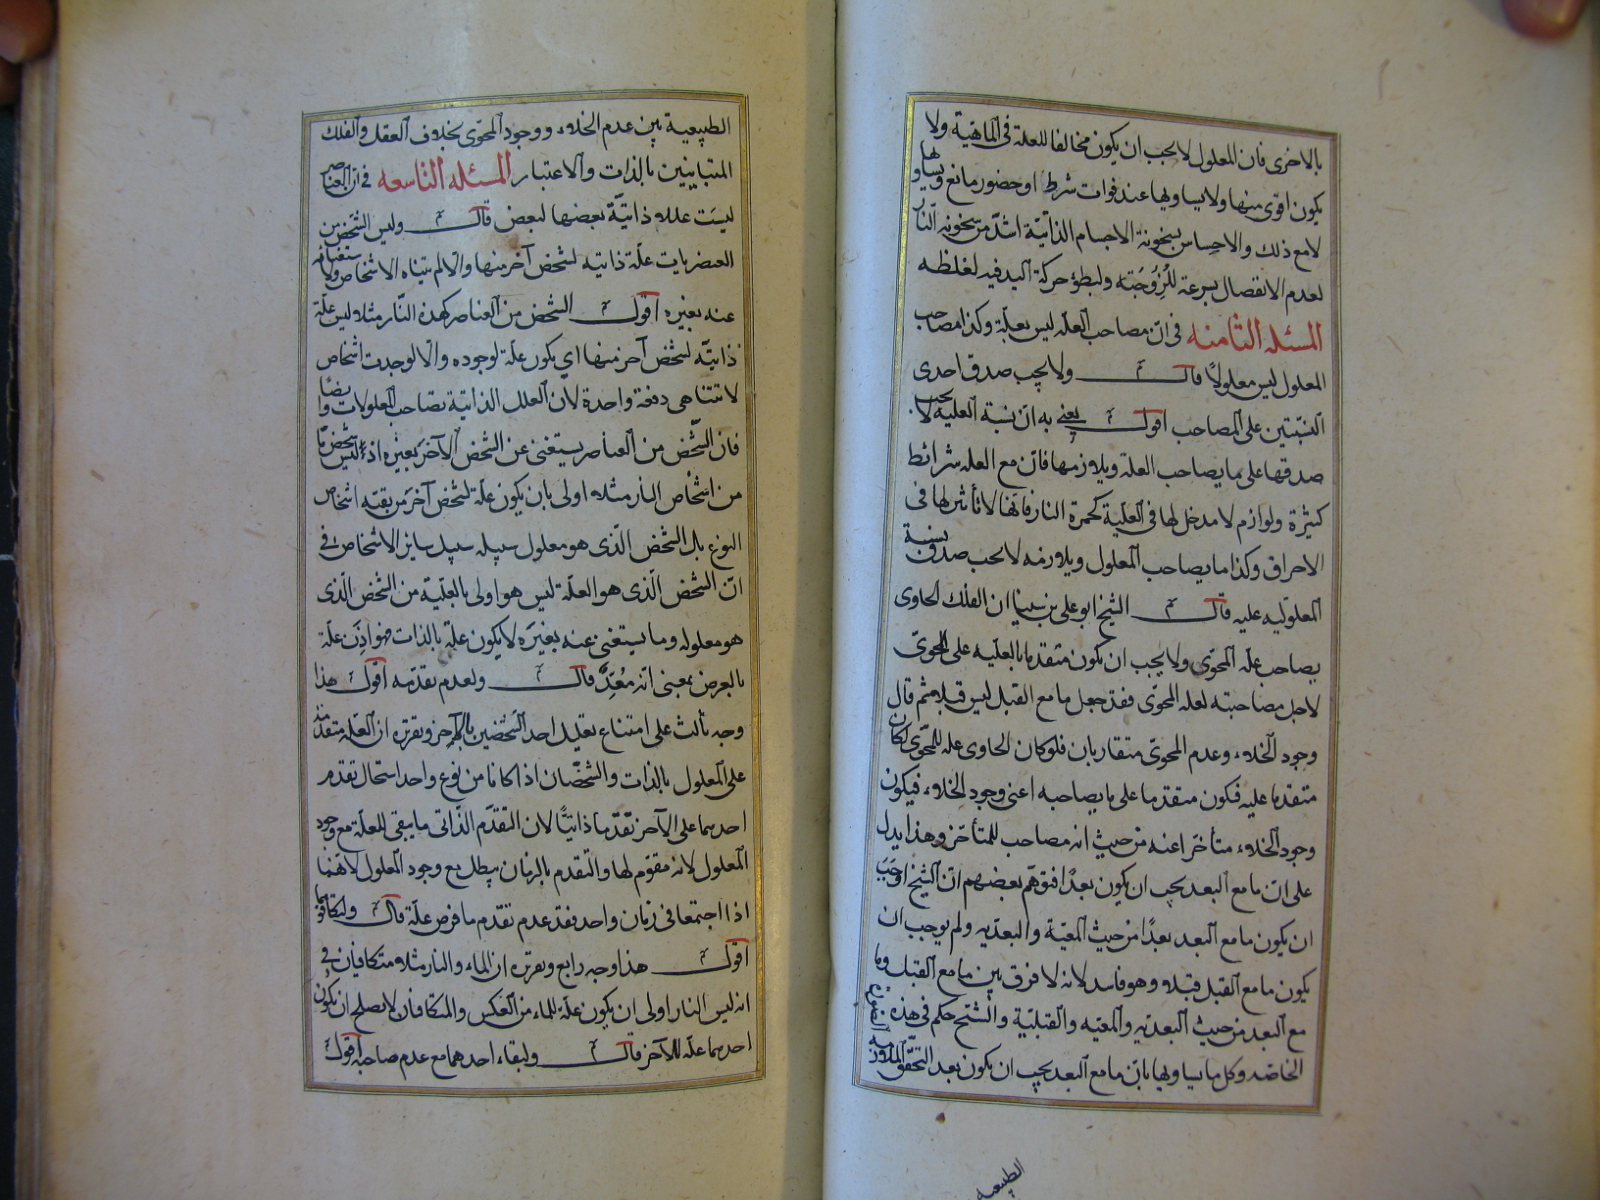 بالاخرى فان المعلول لا يجب ان يكون مخالفا للعلة فى الماهية ولا
يكون اقوى منها ولا يساويها عند فوات شرط او حضور مانع ويساويها
لا مع ذلك والاحساس بسخونة الاجسام الذائبة اشد من سخونة النار
لعدم الانفصال بسرعة للزوجته ولبطؤ حركة اليد فيه لغلظه
المسئله الثامنه فى ان مصاحب العلة ليس بعلة وكذا مصاحب
المعلول ليس معلولًا قال ولا يجب صدق احدى
النسبتين على المصاحب اقول يعنى به ان نسبة العلية لا يجب
صدقها على ما يصاحب العلة ويلازمها فان مع العلة شرائط
كثيرة ولوازم لا مدخل لها فى العلية كحمرة النار فانها لا تأثير لها فى
الاحراق وكذا ما يصاحب المعلول ويلازمه لا يجب صدق نسبة
المعلولية عليه قال الشيخ ابو على بن سينا ان الفلك الحاوى
يصاحب علة المحوى ولا يجب ان يكون متقدما بالعلية على المحوى
لاجل مصاحبته لعلة المحوى فقد جعل ما مع القبل ليس قبل ثم قال
وجود الخلاء وعدم المحوى متقاربان فلو كان الحاوى علة للمحوى لكان
متقدما عليه فيكون متقدما على ما يصاحبه اعنى وجود الخلاء فيكون
وجود الخلاء متأخرا عنه من حيث انه مصاحب للمتأخر وهذا يدل
على ان ما مع البعد يجب ان يكون بعدًا فتوهم بعضهم ان الشيخ اوجب
ان يكون ما مع البعد بعدًا من حيث المعية والبعدية ولم يوجب ان
يكون ما مع القبل قبلا وهو فاسد لانه لا فرق بين ما مع القبل وما
مع البعد من حيث البعدية والمعية والقبلية والشيخ حكم فى هذه الصورة
الخاصة وكل ما يساويها بان ما مع البعد يجب ان يكون بعد لتحقق الملازمة
الطبيعية
الطبيعية بين عدم الخلاء ووجود المحوى بخلاف العقل والفلك
المتباينين بالذات والاعتبار المسئله التاسعه فى ان العناصر
ليست عللا ذاتية بعضها لبعض قال وليس الشخص من
العنصريات علة ذاتية لشخص آخر منها والا لم يتناه الاشخاص ولاستغنائه
عنه بغيره اقول الشخص من العناصر كهذه النار مثلا ليس علة
ذاتية لشخص آخر منها اى يكون علة لوجوده والا لوجدت اشخاص
لا تتناهى دفعة واحدة لان العلل الذاتية يصاحب المعلولات وايضا
فان الشخص من العناصر يستغنى عن الشخص الآخر بغيره اذ ليس شخص ما
من اشخاص النار مثلا اولى بان يكون علة لشخص آخر من بقية اشخاص
النوع بل الشخص الذى هو معلول سبيله سبيل سائر الاشخاص فى
ان الشخص الذى هو العلة ليس هو اولى بالعلية من الشخص الذى
هو معلوله وما يستغنى عنه بغيره لا يكون علة بالذات فهو اذن علة
بالعرض بمعنى انه مُعِدّ قال ولعدم تقدمه اقول هذا
وجه ثالث على امتناع تعليل احد الشخصين بالآخر وتقريره ان العلة متقدمة
على المعلول بالذات والشخصان اذا كانا من نوع واحد استحال تقدم
احدهما على الآخر تقدما ذاتيًا لان التقدم الذاتى ما يبقى للعلة مع وجود
المعلول لانه مقوم لها والتقدم بالزمان يبطل مع وجود المعلول لانهما
اذا اجتمعا فى زمان واحد فقد عدم تقدم ما فرض علة قال ولتكافؤهما
اقول هذا وجه رابع وتقريره ان الماء والنار مثلا متكافيان فى
انه ليس النار اولى ان يكون علة للماء من العكس والمتكافان لا يصلح ان يكون
احدهما علة للآخر قال ولبقاء احدهما مع عدم صاحبه اقول